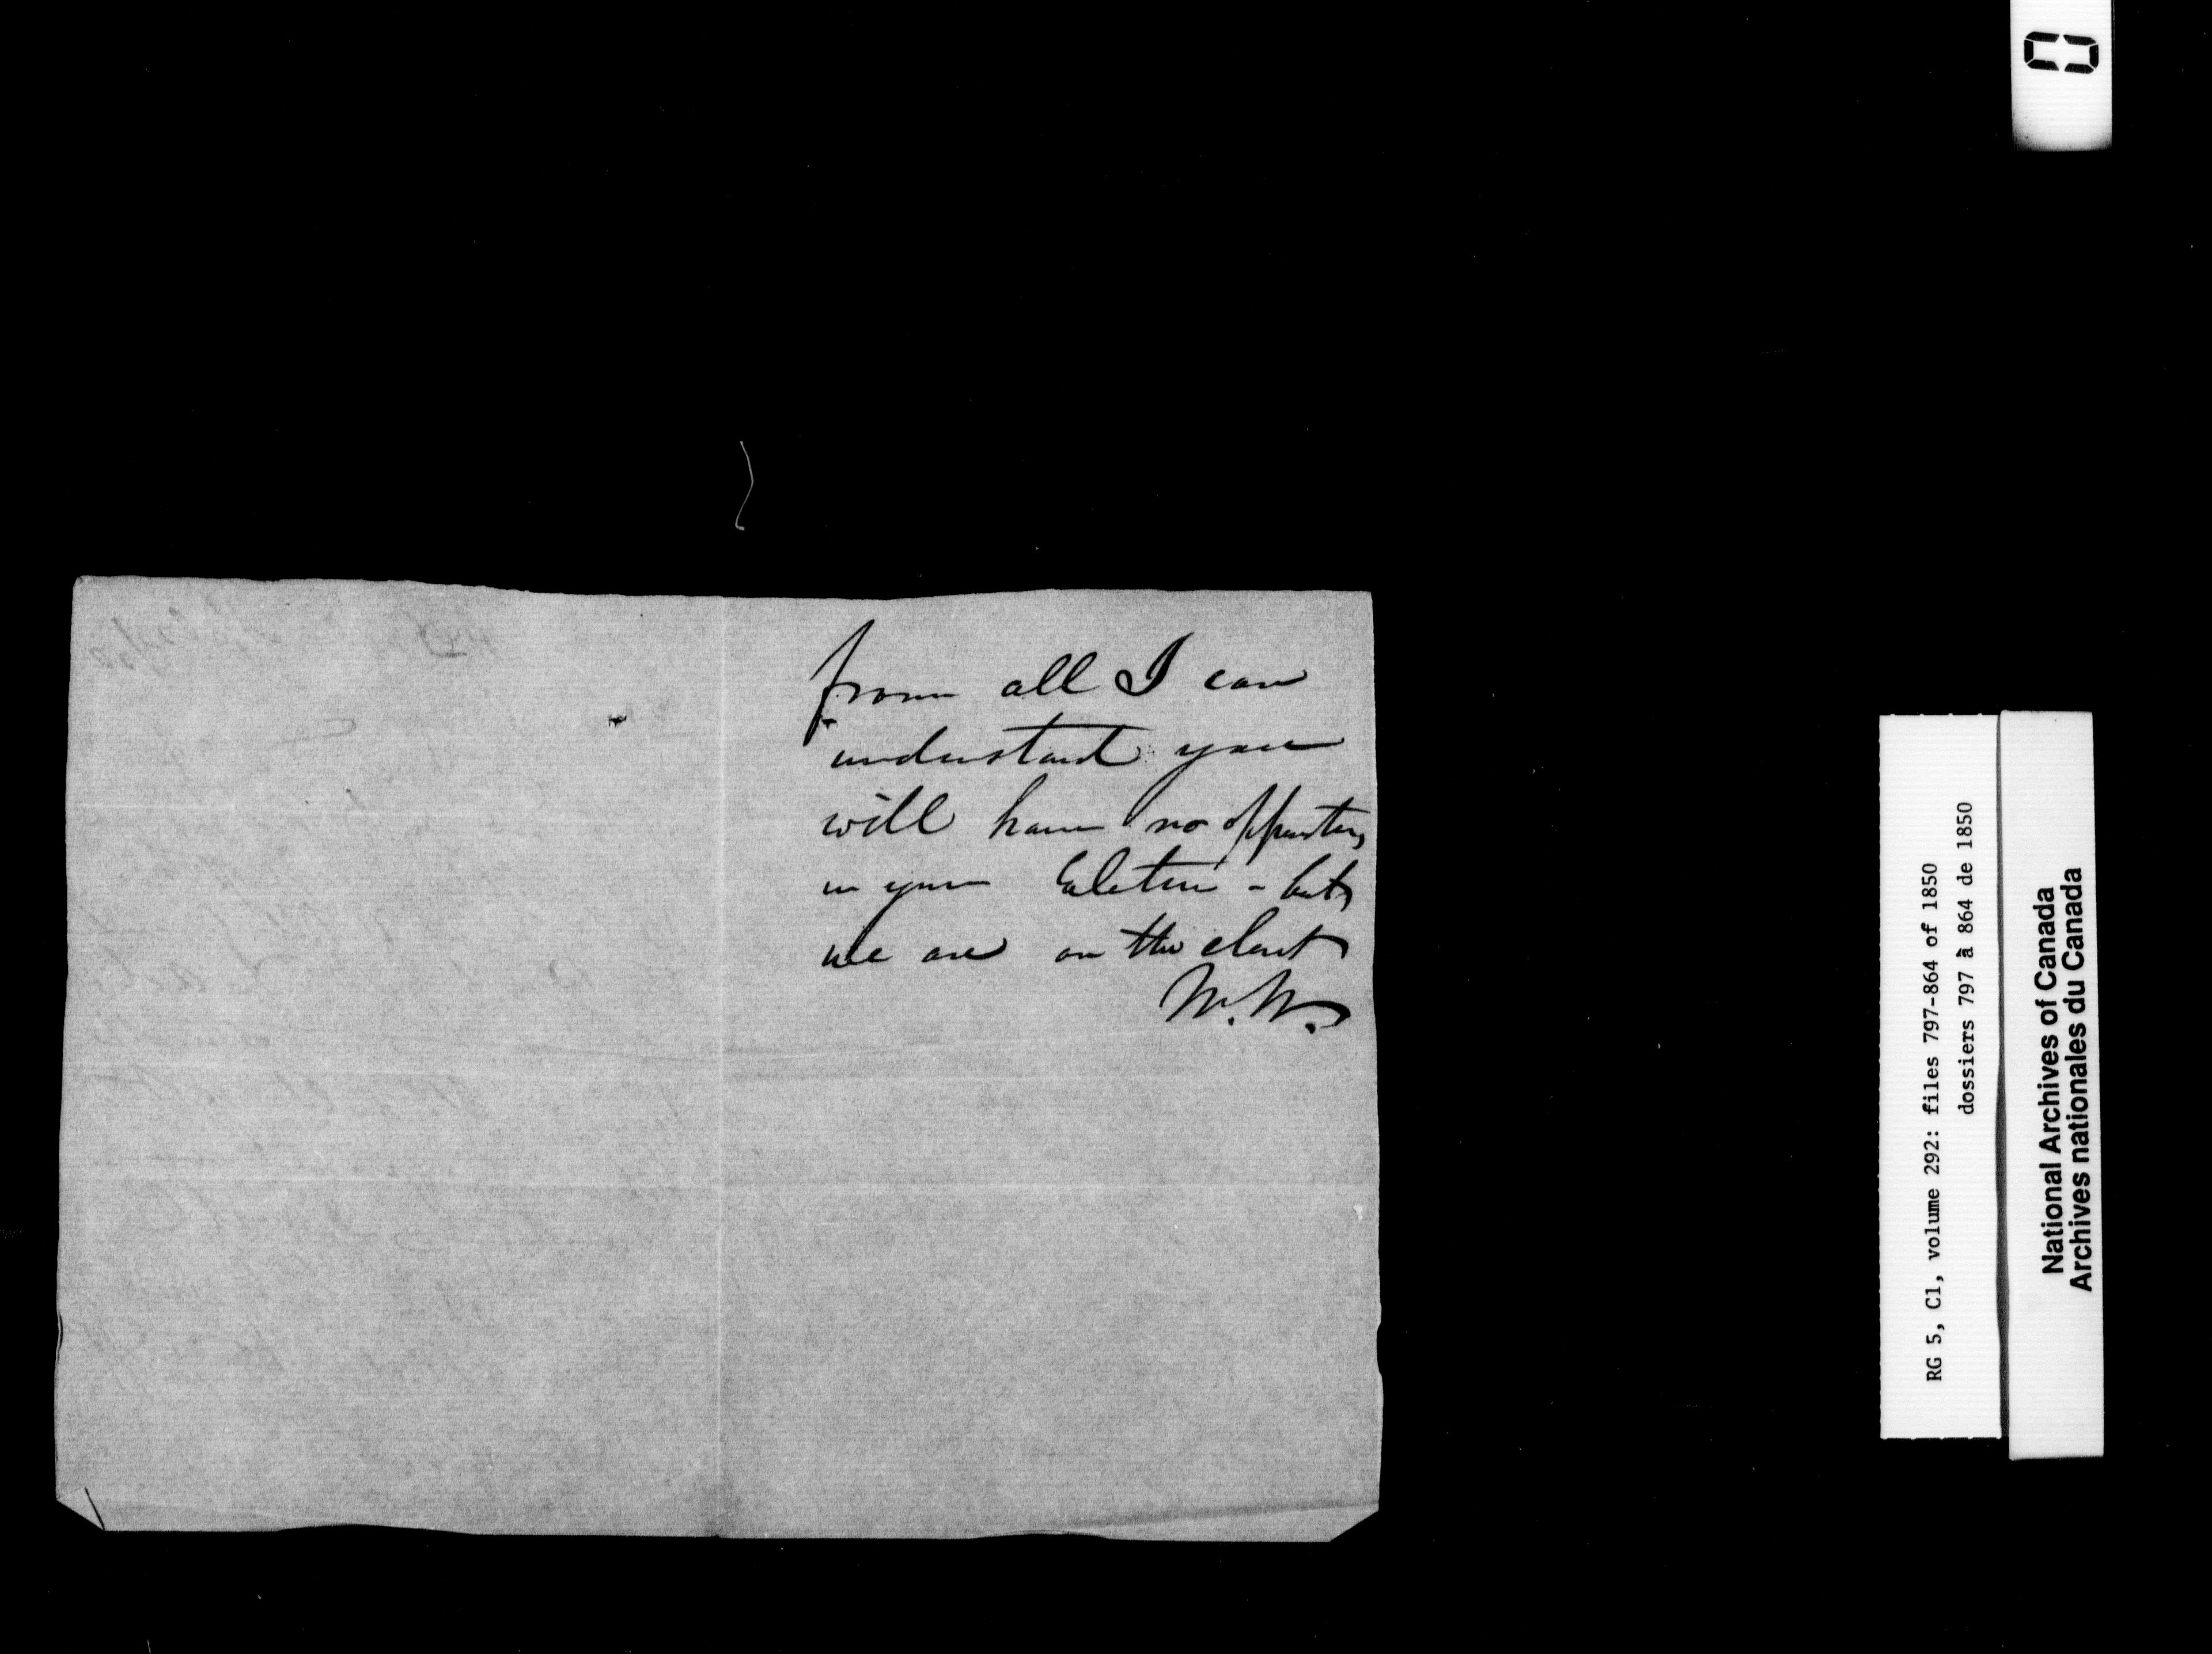 from all I can
understand you
will have no opposition
in your Election - but
we are on the alert
W. W.
RG 5, C1, volume 292: files 797-864 of 1850
dossiers 797 à 864 de 1850
National Archives of Canada
Archives nationales du Canada